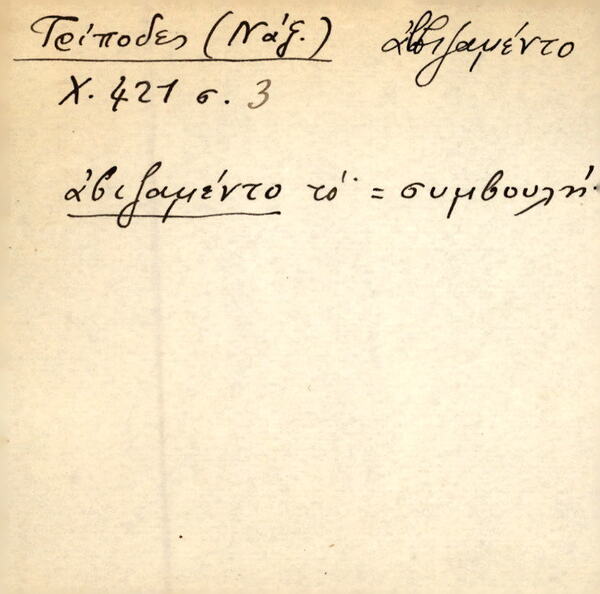 Τρίποδες (Νάξ.) ἀβιζαμέντο
Χ. 421 σ. 3
ἀβιζαμέντο τό = συμβουλή.